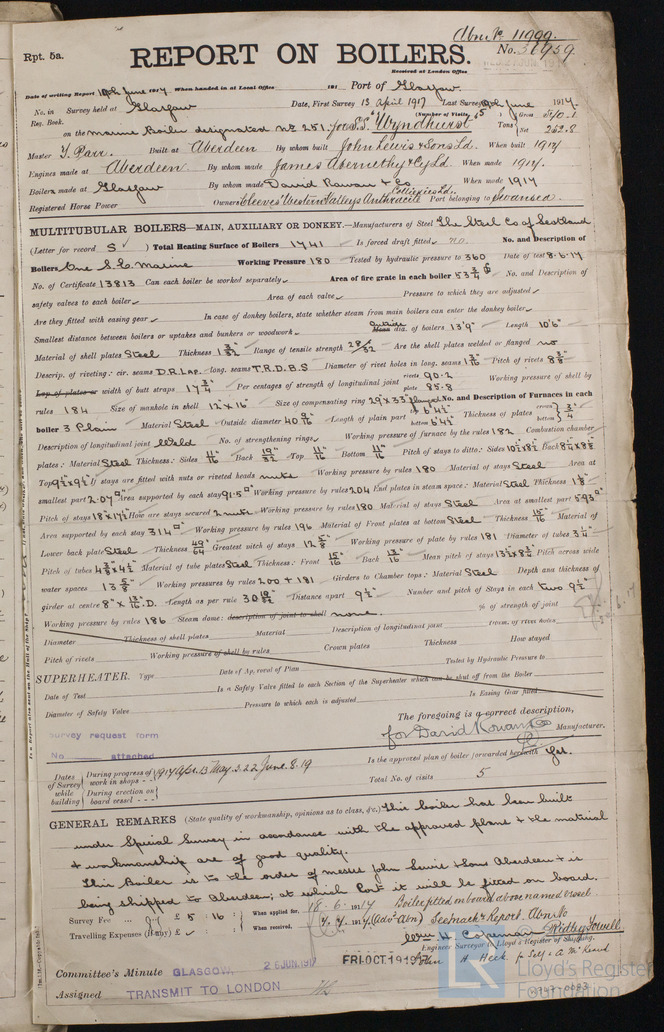 Abn No 11999.
Rpt. 5a.
REPORT ON BOILERS.
No.
Received at London Office
Date of writing Report 19th June 1917 When handed in at Local Office 191 Port of Glasgow
No. in Survey held at Glasgow Date, First Survey 13 April 1917 Last Survey 19th June 1917
Reg. Book. (Number of Visits 5)
on the Marine Boiler designated No 251. for S.S. "Wyndhurst" Tons Gross 540.1 Net 262.8
Master T. Parr. Built at Aberdeen By whom built John Lewis & Sons Ld. When built 1917
Engines made at Aberdeen By whom made James Abernethy & Cy Ld. When made 1917.
Boilers made at Glasgow By whom made David Rowan & Co When made 1917
Registered Horse Power Owners Cleeves' Western Valleys Anthracite Collieries Ld. Port belonging to Swansea
MULTITUBULAR BOILERS—MAIN, AUXILIARY OR DONKEY.—Manufacturers of Steel The Steel Co of Scotland
(Letter for record S ) Total Heating Surface of Boilers 1741 Is forced draft fitted no. No. and Description of
Boilers One S.E. Marine Working Pressure 180 Tested by hydraulic pressure to 360 Date of test 8.6.17
No. of Certificate 13813 Can each boiler be worked separately Area of fire grate in each boiler 53 3/4 No. and Description of
safety valves to each boiler Area of each valve Pressure to which they are adjusted
Are they fitted with easing gear In case of donkey boilers, state whether steam from main boilers can enter the donkey boiler
Smallest distance between boilers or uptakes and bunkers or woodwork Outside Mean dia. of boilers 13'9" Length 10'6"
Material of shell plates Steel Thickness 1 3/32 Range of tensile strength 28/32 Are the shell plates welded or flanged no
Descrip. of riveting: cir. seams D.R.Lap. long. seams T.R.D.B.S Diameter of rivet holes in long. seams 1 3/16 Pitch of rivets 8 3/8
Lap of plates or width of butt straps 17 3/4 Per centages of strength of longitudinal joint rivets 90.2 plate 85.8 Working pressure of shell by
rules 184 Size of manhole in shell 12" x 16" Size of compensating ring 29" x 33" flanged No. and Description of Furnaces in each
boiler 3 Plain Material Steel Outside diameter 40 9/16 Length of plain part top 6'4½" bottom 6'4½" Thickness of plates crown bottom 3/4
Description of longitudinal joint Weld No. of strengthening rings Working pressure of furnace by the rules 182 Combustion chamber
plates: Material Steel Thickness: Sides 11/16 Back 19/32 Top 11/16 Bottom 11/16 Pitch of stays to ditto: Sides 10½ x 8½ Back 8¼ x 8⅜
Top 9½ x 9½ If stays are fitted with nuts or riveted heads nuts Working pressure by rules 180 Material of stays Steel Area at
smallest part 2.07 Area supported by each stay 91.5 Working pressure by rules 204 End plates in steam space: Material Steel Thickness 1 1/8
Pitch of stays 18" x 17½ How are stays secured 2 nuts Working pressure by rules 180 Material of stays Steel Area at smallest part 5.93
Area supported by each stay 314 Working pressure by rules 196 Material of Front plates at bottom Steel Thickness 15/16 Material of
Lower back plate Steel Thickness 49/64 Greatest pitch of stays 12 5/8 Working pressure of plate by rules 181 Diameter of tubes 3¼
Pitch of tubes 4⅜ x 4½ Material of tube plates Steel Thickness: Front 15/16 Back 13/16 Mean pitch of stays 13½ x 8¾ Pitch across wide
water spaces 13 5/8 Working pressures by rules 200 + 181 Girders to Chamber tops: Material Steel Depth and thickness of
girder at centre 8" x 13/16 D. Length as per rule Distance apart 9½ Number and pitch of Stays in each two 9½
Working pressure by rules 186 Steam dome: description of joint to shell none. % of strength of joint
Diameter Thickness of shell plates Material Description of longitudinal joint Diam. of rivet holes
Pitch of rivets Working pressure of shell by rules Crown plates Thickness How stayed
SUPERHEATER. Type Date of Approval of Plan Tested by Hydraulic Pressure to
Date of Test Is a Safety Valve fitted to each Section of the Superheater which can be shut off from the Boiler
Diameter of Safety Valve Pressure to which each is adjusted Is Easing Gear fitted
Survey request form
No. attached
The foregoing is a correct description,
for David Rowan & Co Manufacturer.
Dates of Survey while building During progress of work in shops - - 1917 Apr. 13 May 3. 22 June. 8. 19
During erection on board vessel - - -
Is the approved plan of boiler forwarded herewith Yes.
Total No. of visits 5
GENERAL REMARKS (State quality of workmanship, opinions as to class, &c.) This boiler has been built
under Special Survey in accordance with the approved plans & the material
& workmanship are of good quality.
This Boiler is to the order of Messrs John Lewis & Sons Aberdeen & is
being shipped to Aberdeen; at which Port it will be fitted on board.
Boiler fitted on board above named vessel
Survey Fee £ 5 : 16 : When applied for, 18-6-1917
See back & Report. Abn No
Travelling Expenses (if any) £ When received, 1917
Wm H. Coleman
Engineer Surveyor to Lloyd's Register of Shipping.
John H. Heck p. Self & A. McKeand
Committee's Minute GLASGOW, 26 JUN. 1917
FRI. OCT. 19 1917
Assigned TRANSMIT TO LONDON
Lloyd's Register
Foundation